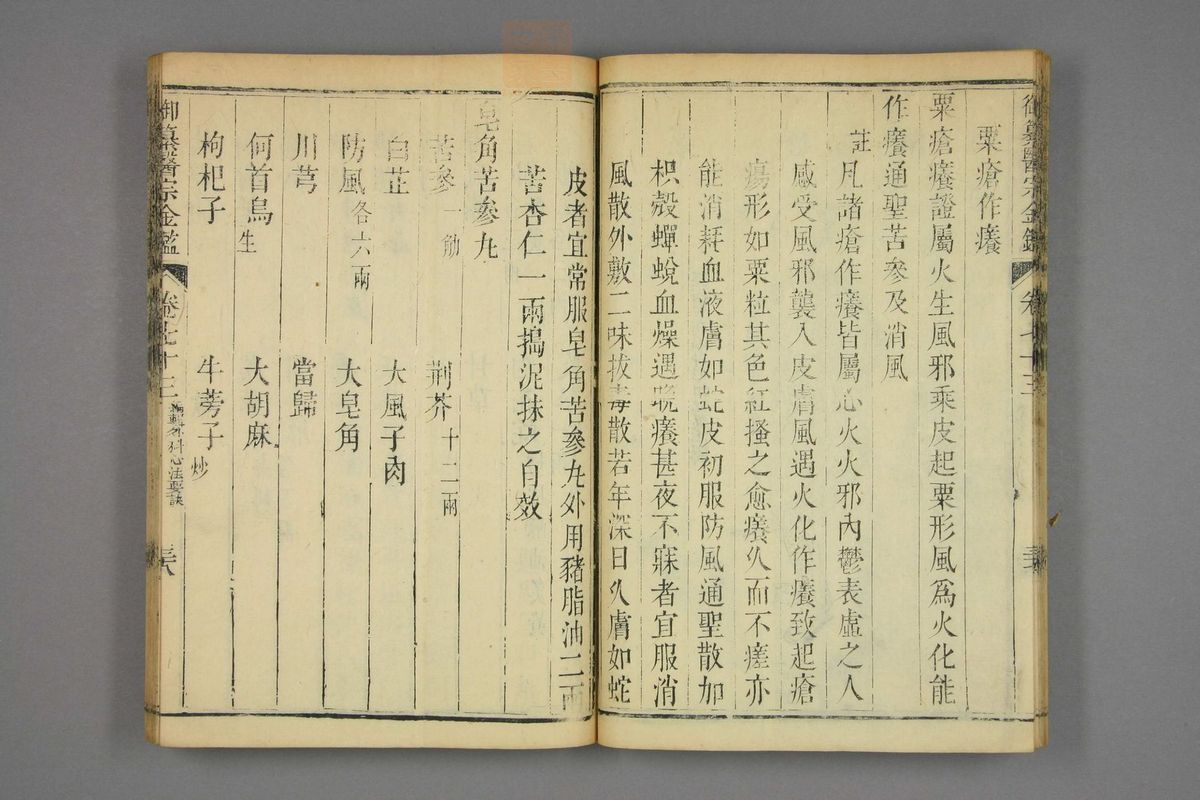 御纂醫宗金鑑
卷七十三
粟瘡作癢
粟瘡癢證屬火生風邪乘皮起粟形風為火化能
作癢通聖苦參及消風
註凡諸瘡作癢皆屬心火火邪內鬱表虛之人
感受風邪襲入皮膚風遇火化作癢致起瘡
瘍形如粟粒其色紅搔之愈癢久而不瘥亦
能消耗血液膚如蛇皮初服防風通聖散加
枳殼蟬蛻血燥遇晚癢甚夜不寐者宜服消
風散外敷二味拔毒散若年深日久膚如蛇
皮者宜常服皂角苦參丸外用豬脂油二兩
苦杏仁一兩搗泥抹之自效
皂角苦參丸
苦參一觔 荆芥十二兩
白芷 大風子肉
防風各六兩 大皂角
川芎 當歸
何首烏生 大胡麻
枸杞子 牛蒡子炒
御纂醫宗金鑑 卷七十三 編輯外科心法要訣 三八